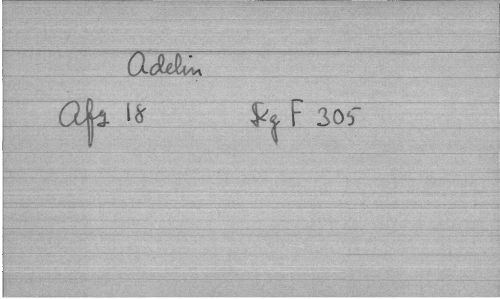 Adelin
Afz 18 Kg F 305